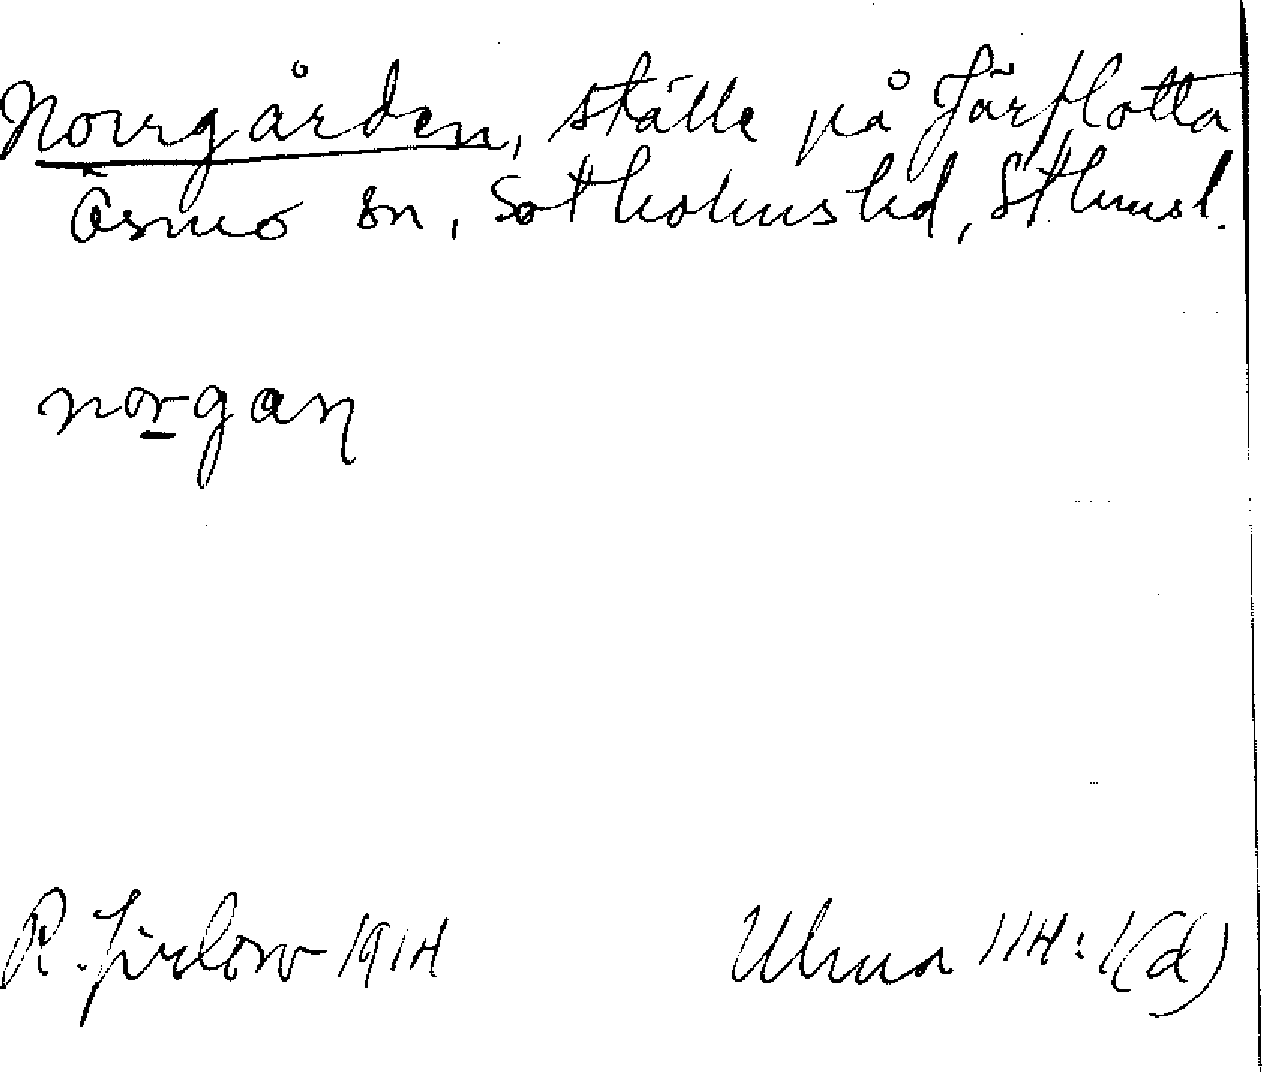 Norrgården, ställe på Järflotta
Ösmo sn, Sotholms hd, Sthmsl.
norgaɳ
R. Jirlow 1914
Ulma 114:1(d)